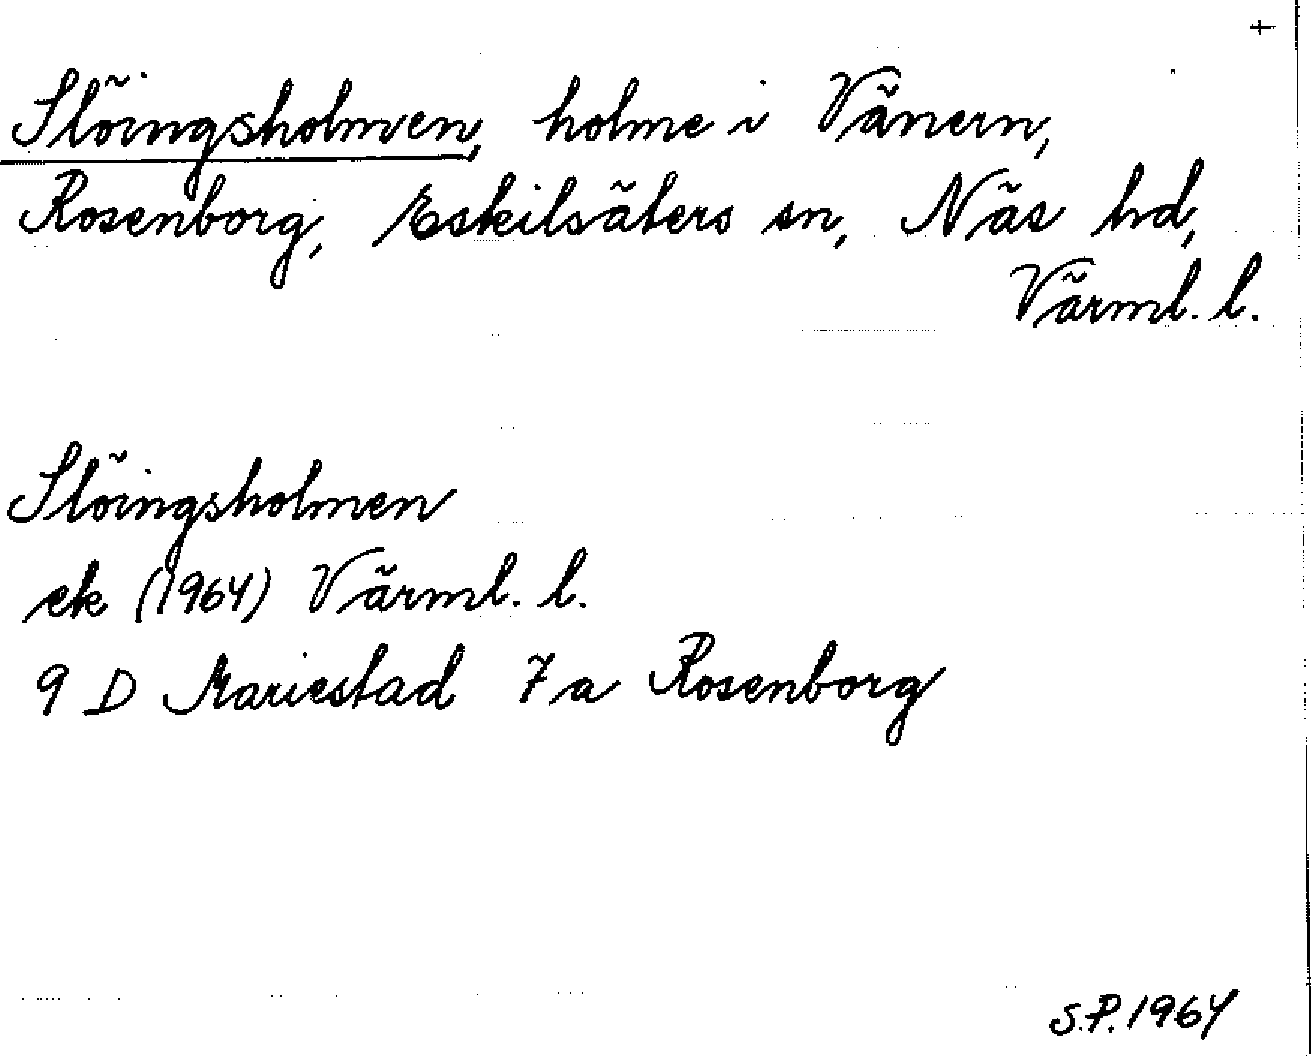 +
Slöingsholmen, holme i Vänern,
Rosenborg, Eskilsäters sn, Näs hd,
Värml. l.
Slöingsholmen
ek (1964) Värml. l.
9 D Mariestad 7 a Rosenborg
S.P. 1964